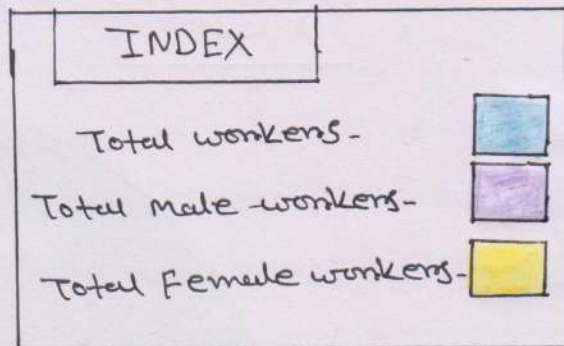 INDEX
Total workers-
Total male workers-
Total Female workers-